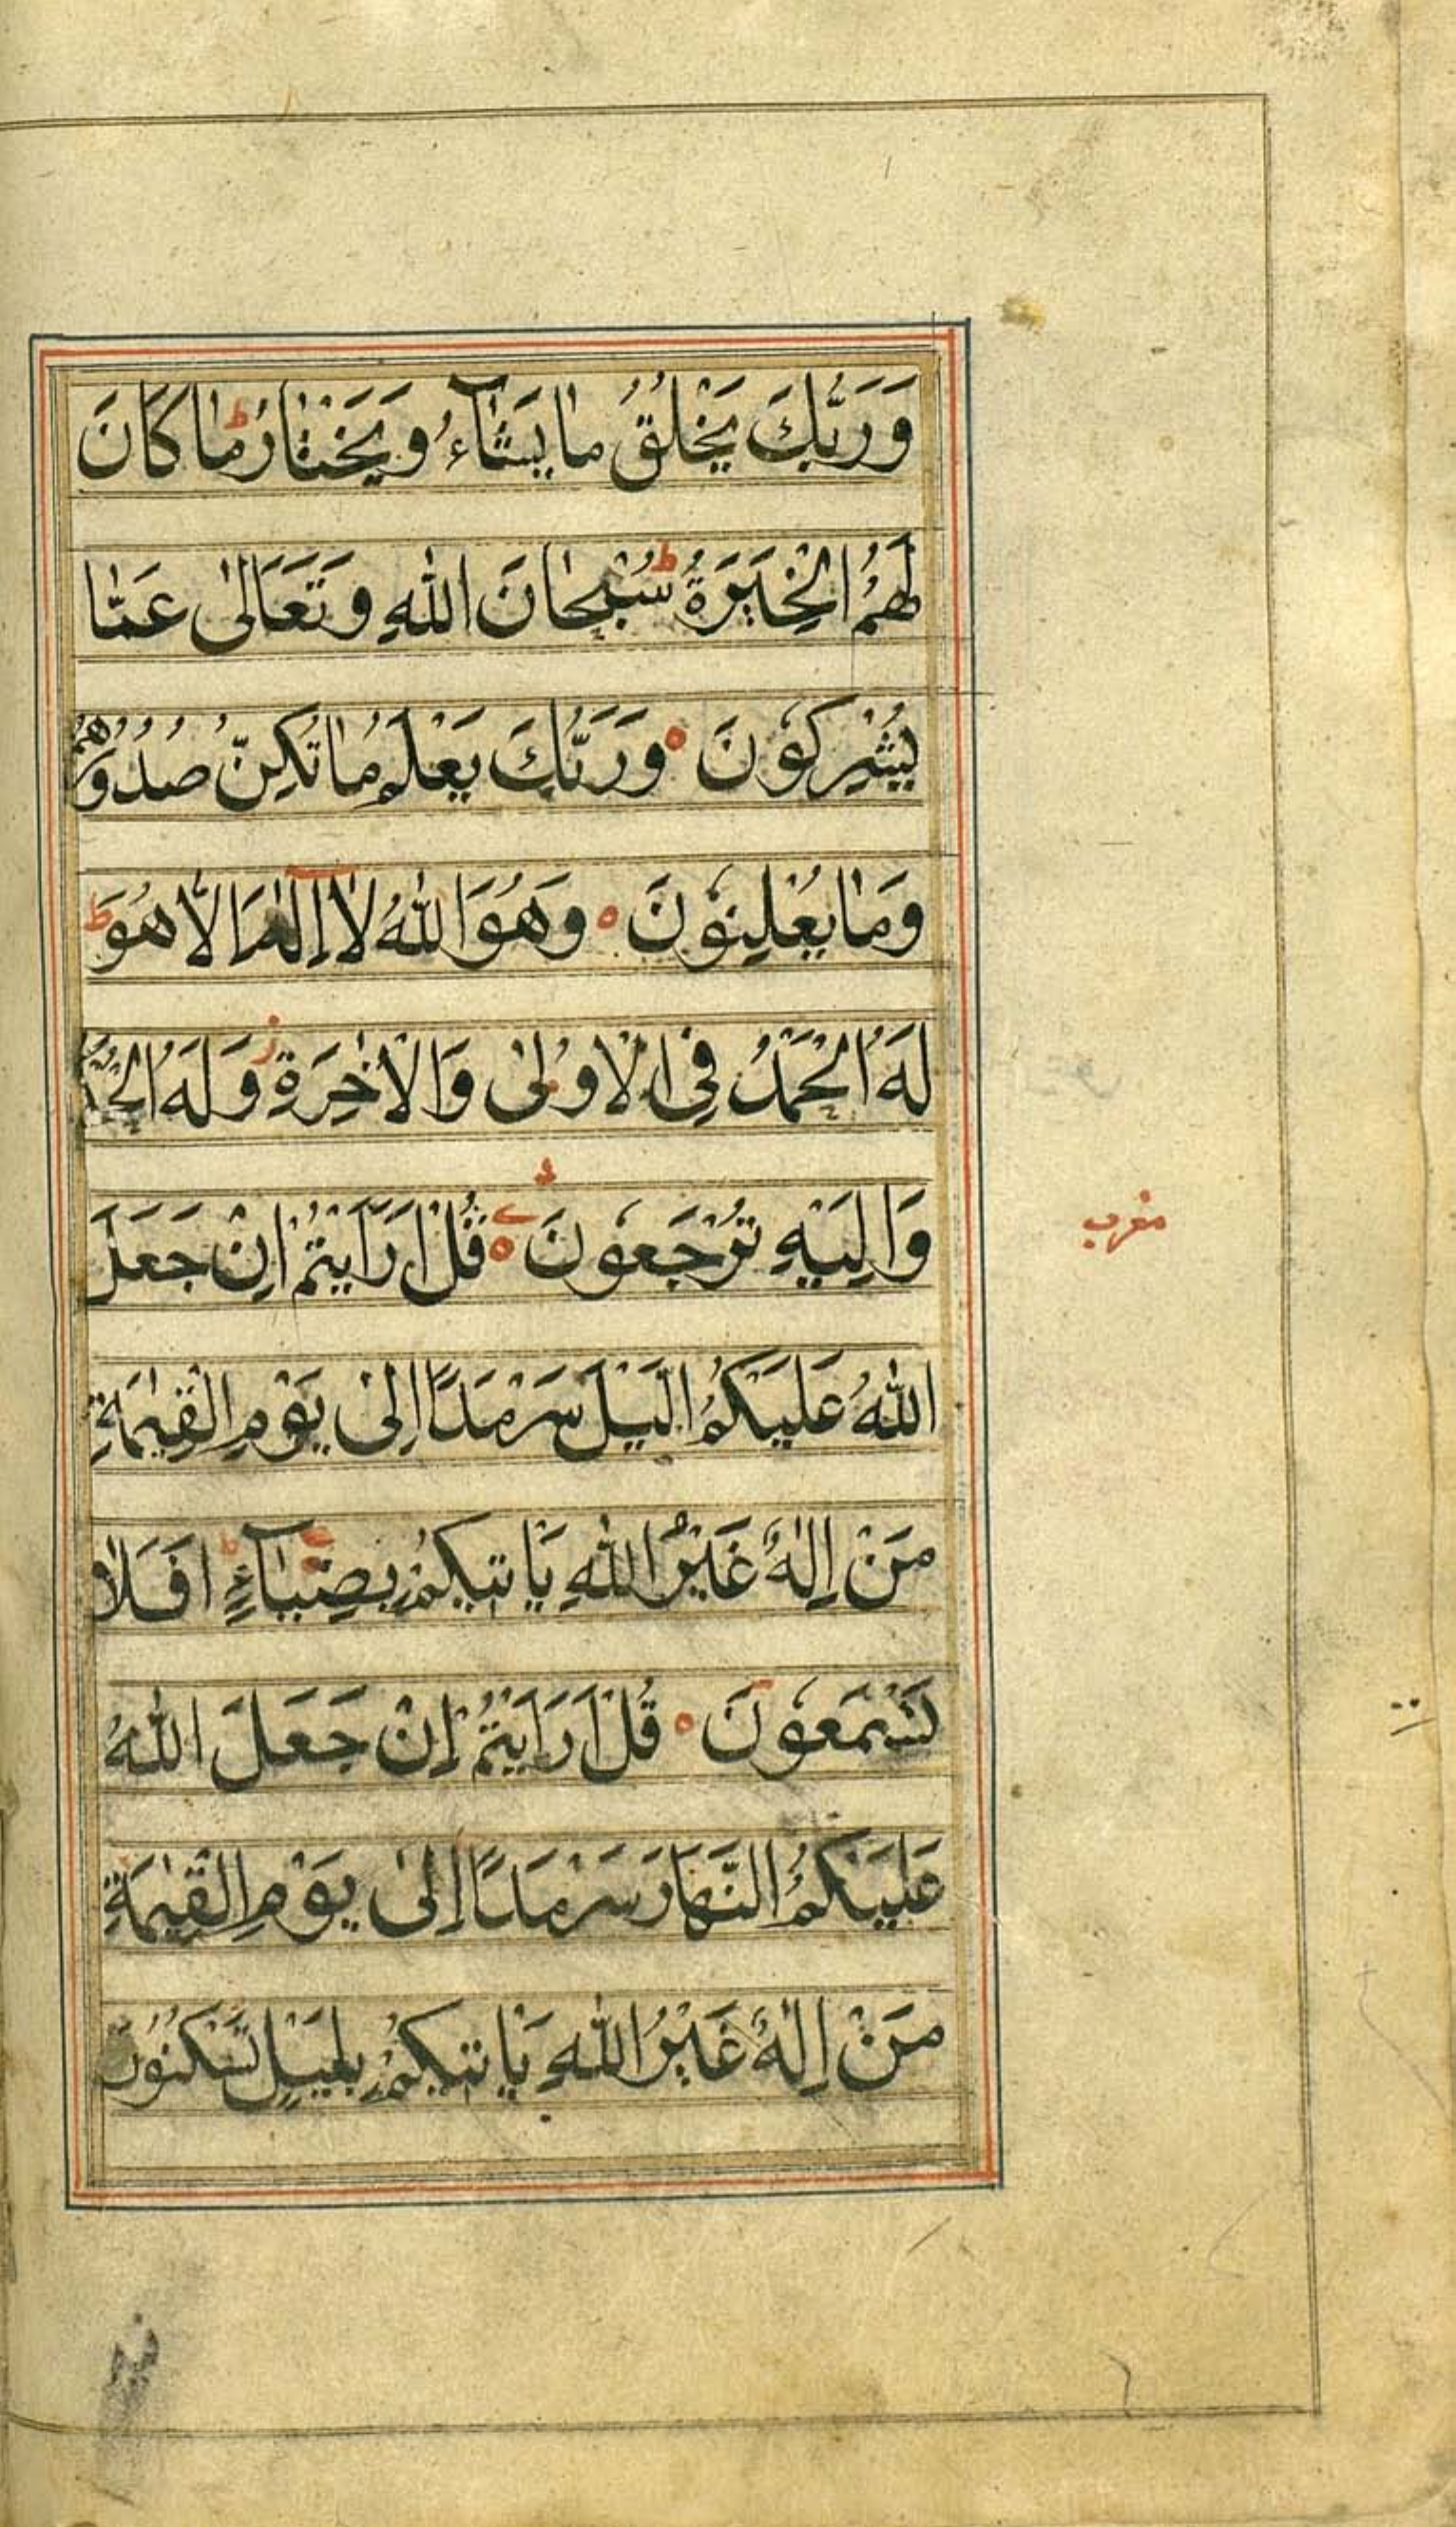 وَرَبُّكَ يَخْلُقُ مَا يَشَآءُ وَيَخْتَارُ ط مَا كَانَ
لَهُمُ الْخِيَرَةُ ط سُبْحَانَ اللّٰهِ وَتَعَالٰى عَمَّا
يُشْرِكُوْنَ ه وَرَبُّكَ يَعْلَمُ مَا تُكِنُّ صُدُوْرُهُمْ
وَمَا يُعْلِنُوْنَ ه وَهُوَ اللّٰهُ لَآ اِلٰهَ اِلَّا هُوَ ط
لَهُ الْحَمْدُ فِى الْاُوْلٰى وَالْاٰخِرَةِ ز وَلَهُ الْحُكْمُ
وَاِلَيْهِ تُرْجَعُوْنَ ه قُلْ اَرَاَيْتُمْ اِنْ جَعَلَ
مغرب
اللّٰهُ عَلَيْكُمُ الَّيْلَ سَرْمَدًا اِلٰى يَوْمِ الْقِيٰمَةِ
مَنْ اِلٰهٌ غَيْرُ اللّٰهِ يَاْتِيْكُمْ بِضِيَآءٍ ط اَفَلَا
تَسْمَعُوْنَ ه قُلْ اَرَاَيْتُمْ اِنْ جَعَلَ اللّٰهُ
عَلَيْكُمُ النَّهَارَ سَرْمَدًا اِلٰى يَوْمِ الْقِيٰمَةِ
مَنْ اِلٰهٌ غَيْرُ اللّٰهِ يَاْتِيْكُمْ بِلَيْلٍ تَسْكُنُوْنَ